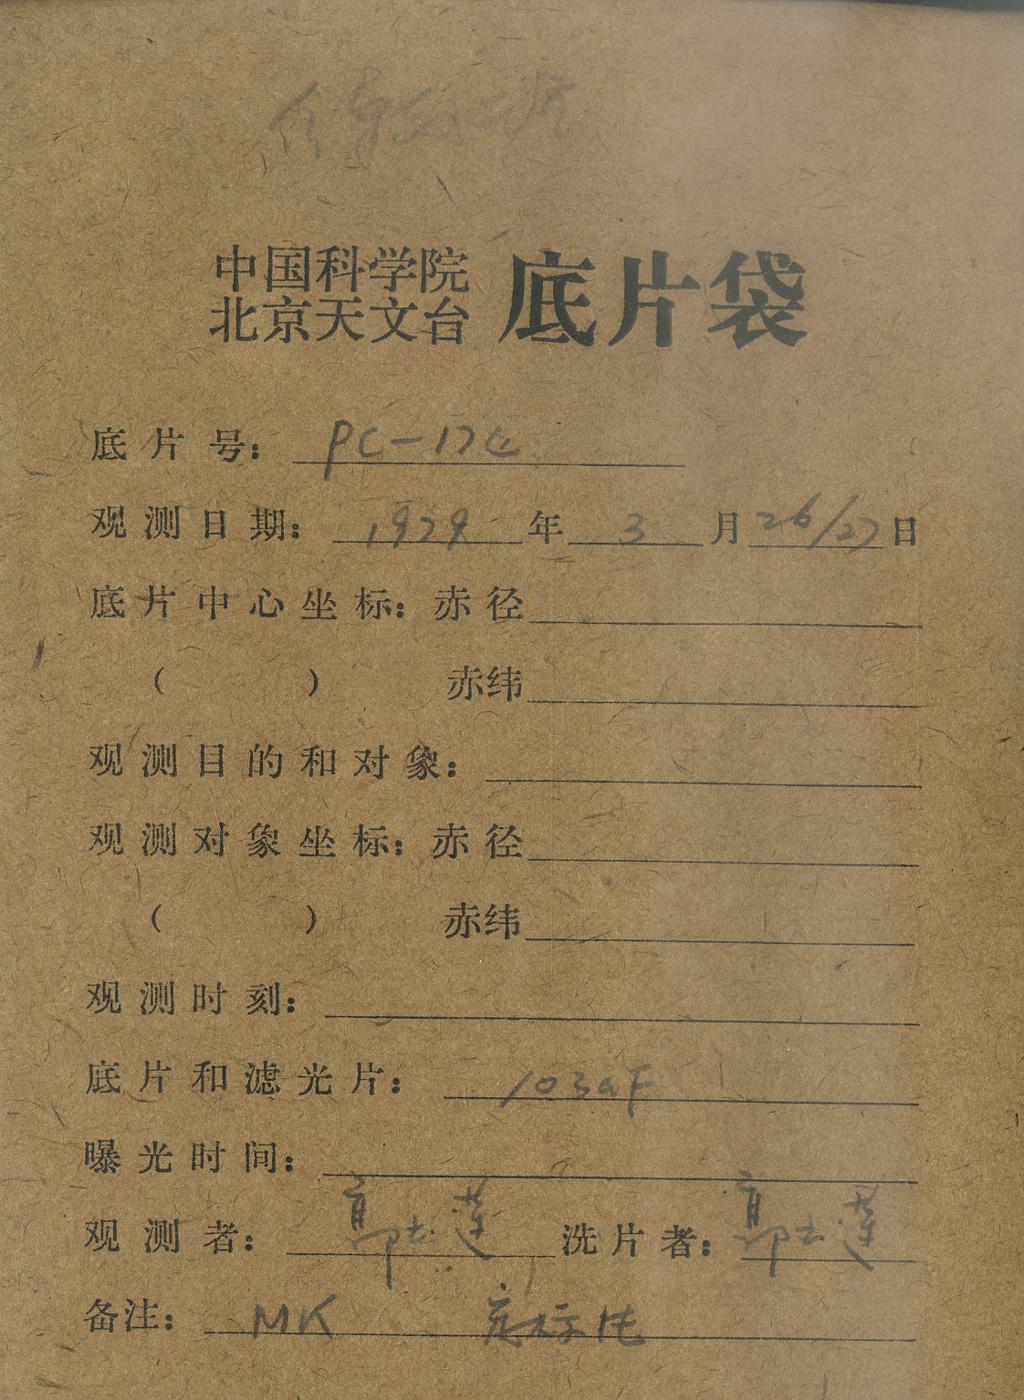 中国科学院
北京天文台 底片袋
底片号: PC-17
观测日期: 1979年3月26/27日
底片中心坐标: 赤径
( ) 赤纬
观测目的和对象:
观测对象坐标: 赤径
( ) 赤纬
观测时刻:
底片和滤光片: 103aF
曝光时间:
观测者: 郭 莲 洗片者: 郭 莲
备注: MK 定标